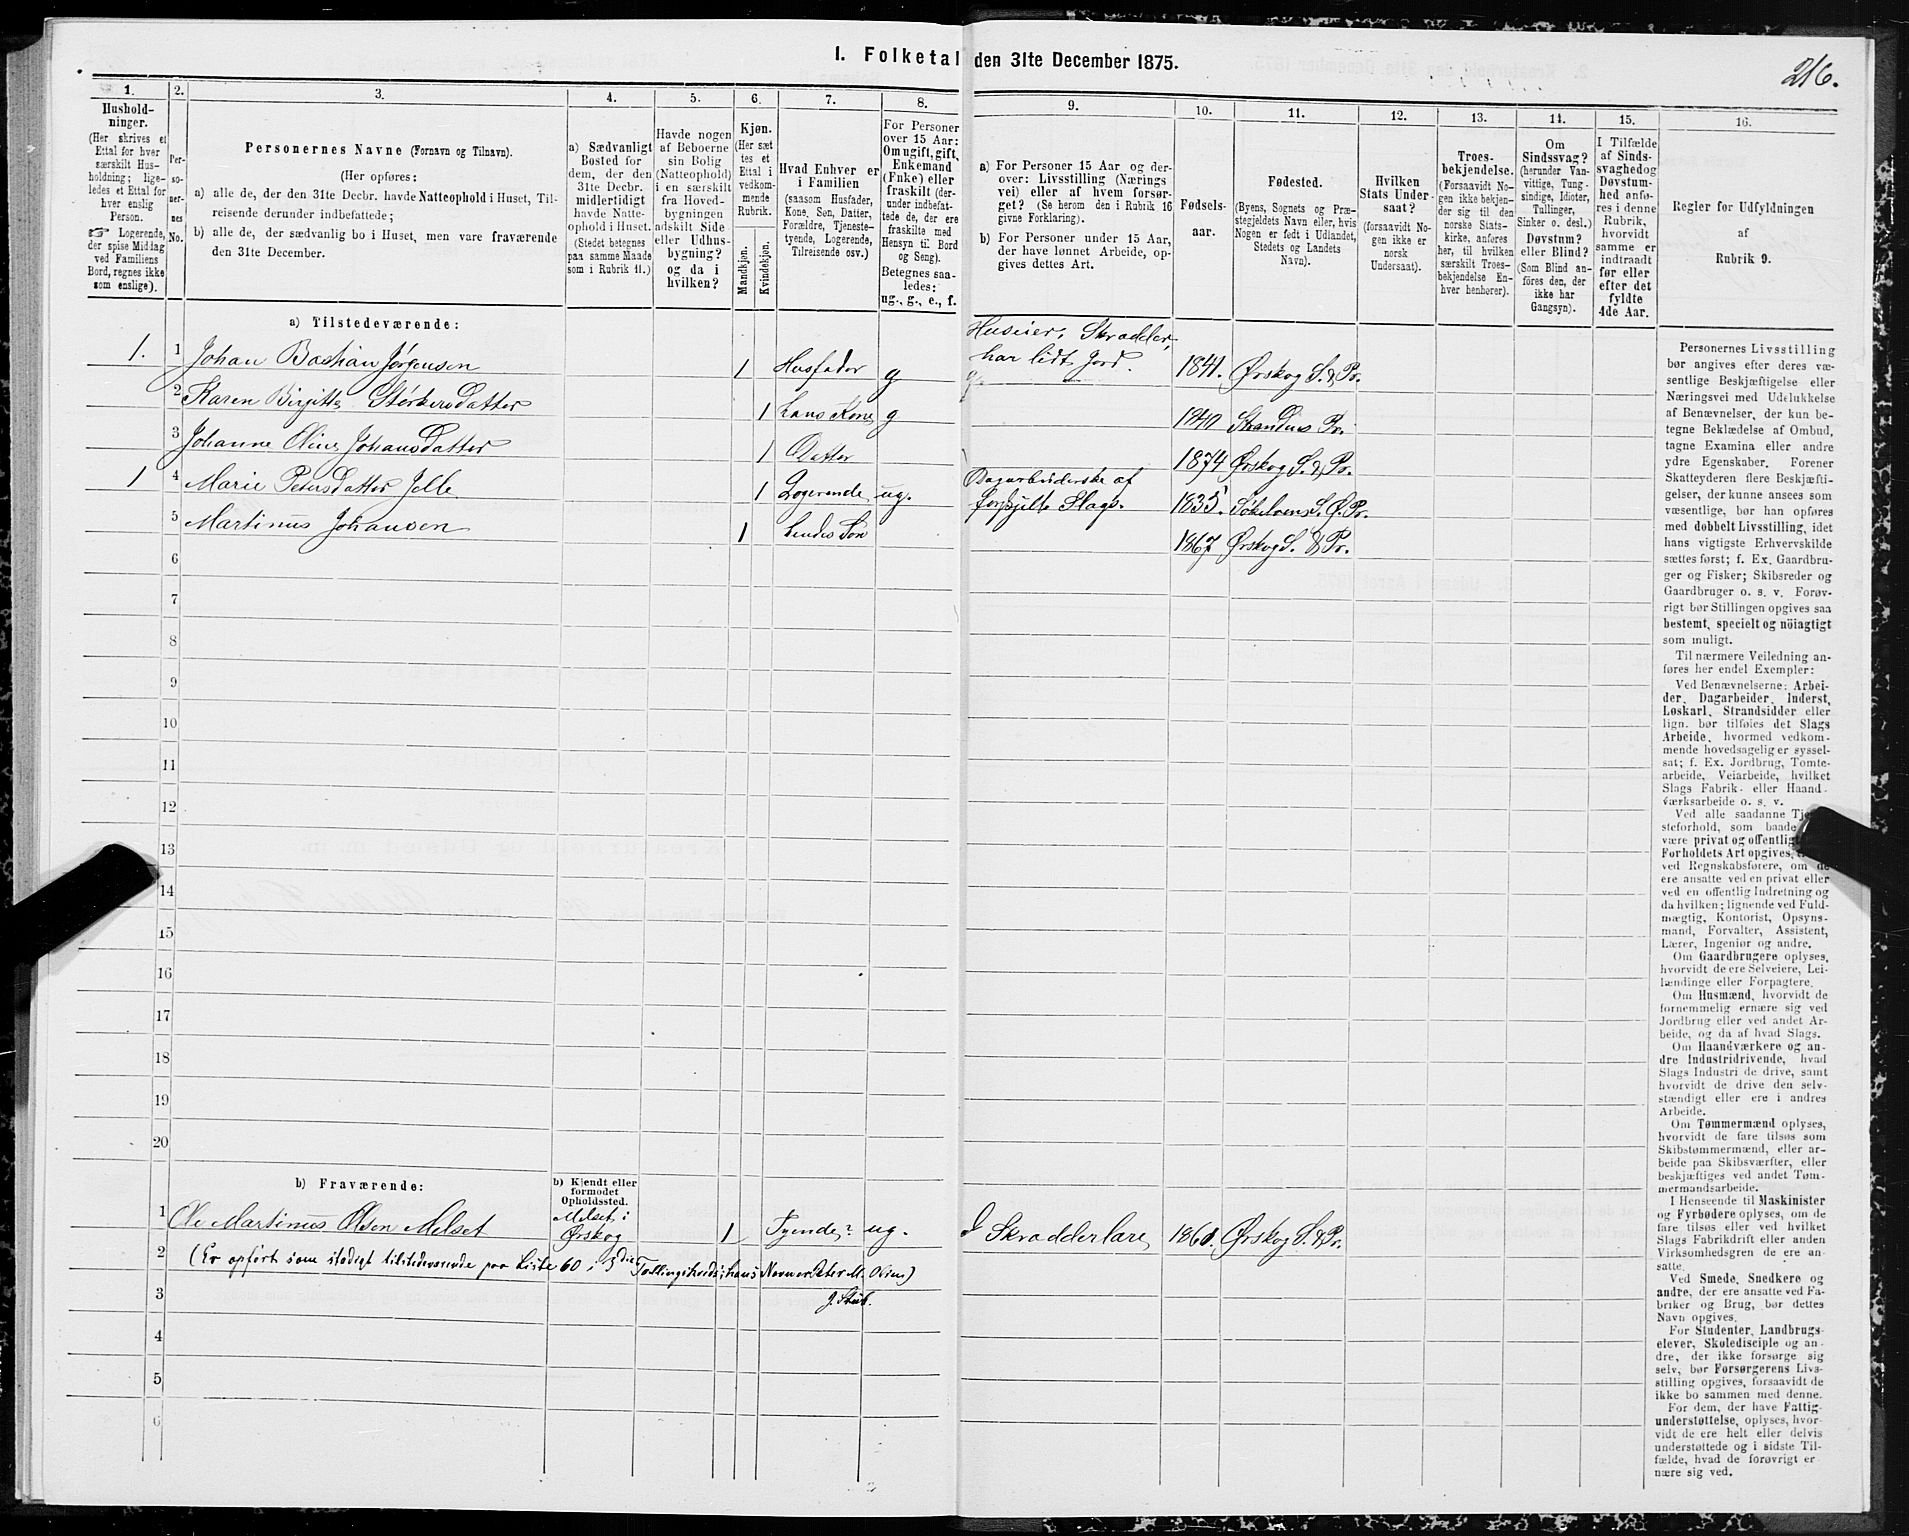 I. Folketal den 31te December 1875.
216.
1.
Hushold-
ninger.
(Her skrives et
Ettal for hver
særskilt Hus-
holdning; lige-
ledes et Ettal for
hver enslig
Person.
☞ Logerende,
der spise Middag
ved Familiens
Bord, regnes ikke
som enslige).
2.
Per-
so-
ner-
nes
No.
3.
Personernes Navne (Fornavn og Tilnavn).
(Her opføres:
a) alle de, der den 31te Decbr. havde Natteophold i Huset, Til-
reisende derunder indbefattede;
b) alle de, der sædvanlig bo i Huset, men vare fraværende
den 31te December.
4.
a) Sædvanligt
Bosted for
dem, der den
31te Decbr.
midlertidigt
havde Natte-
ophold i Huset.
(Stedet betegnes
paa samme Maade
som i Rubrik 11.)
5.
Havde nogen
af Beboerne
sin Bolig
(Natteophold)
i en særskilt
fra Hoved-
bygningen
adskilt Side
eller Udhus-
bygning?
og da i
hvilken?
6.
Kjøn.
(Her sæt
tes et
Ettal i
vedkom-
mende
Rubrik.
Mandkjøn.
Kvindekjøn.
7.
Hvad Enhver er
i Familien
(saasom Husfader,
Kone, Søn, Datter,
Forældre, Tjeneste-
tyende, Logerende,
Tilreisende osv.)
8.
For Personer
over 15 Aar:
Om ugift, gift,
Enkemand
(Enke) eller
fraskilt (der-
under indbefat-
tede de, der ere
fraskilte med
Hensyn til Bord
og Seng).
Betegnes saa-
ledes:
ug., g., e., f.
9.
a) For Personer 15 Aar og der-
over: Livsstilling (Nærings
vei) eller af hvem forsør-
get? (Se herom den i Rubrik 16
givne Forklaring).
b) For Personer under 15 Aar,
der have lønnet Arbeide, op-
gives dettes Art.
10.
Fødsels-
aar.
11.
Fødested.
(Byens, Sognets og Præ-
stegjeldets Navn eller, hvis
Nogen er født i Udlandet,
Stedets og Landets
Navn).
12.
Hvilken
Stats Under-
saat?
(forsaavidt No-
gen ikke er
norsk
Undersaat).
13.
Troes-
bekjendelse.
(Forsaavidt No-
gen ikke bekjen-
der sig til den
norske Stats-
kirke, anføres
her, til hvilken
særskilt Troes-
bekjendelse En-
hver henhører).
14.
Om
Sindssvag?
(herunder Van-
vittige, Tung-
sindige, Idioter,
Tullinger,
Sinker o. desl.)
Døvstum?
eller Blind?
(Som Blind an-
føres den, der
ikke har
Gangsyn).
15.
I Tilfælde
af Sinds-
svaghed og
Døvstum-
hed anfø-
res i denne
Rubrik,
hvorvidt
samme er
indtraadt
før eller
efter det
fyldte
4de Aar.
16.
Regler for Udfyldningen
af
Rubrik 9.
a) Tilstedeværende:
1. 1 Johan Bastian Jørgensen 1 Husfader g Huseier, Skradder, har lidt Jord. 1841. Ørskog S. & Pr.
2 Karen Birgitte Størkersdatter 1 hans Kone g 1840 Strandens Pr.
3 Johanne Oline Johansdatter 1 Datter 1874 Ørskog S. & Pr.
1 4 Marie Petersdatter Jelle 1 Logerende ug. Dagarbeiderske af forskjellt Slags. 1835. Søkelvens S. Ø. Pr.
5 Martinus Johansen 1 hendes Søn 1867 Ørskog S. & Pr.
6
7
8
9
10
11
12
13
14
15
16
17
18
19
20
b) Fraværende:
b) Kjendt eller
formodet
Opholdssted.
1 Ole Martinus Olsen Melset Melset i Ørskog 1 Tyende? ug. I Skradderlære 1860. Ørskog S. & Pr.
2 (Er opført som stadigt tilstedeværende paa Liste 60 i 3die Tællingskreds; hans Navn er Peter M. Olsen)
3 J. Stub.
4
5
6
Personernes Livsstilling
bør angives efter deres væ-
sentlige Beskjæftigelse eller
Næringsvei med Udelukkelse
af Benævnelser, der kun be-
tegne Beklædelse af Ombud,
tagne Examina eller andre
ydre Egenskaber. Forener
Skatteyderen flere Beskjæfti-
gelser, der kunne ansees som
væsentlige, bør han opføres
med dobbelt Livsstilling, idet
hans vigtigste Erhvervskilde
sættes først; f. Ex. Gaardbru-
ger og Fisker; Skibsreder og
Gaardbruger o. s. v. Forøv-
rigt bør Stillingen opgives saa
bestemt, specielt og nöiagtigt
som muligt.
Til nærmere Veiledning an-
føres her endel Exempler:
Ved Benævnelserne: Arbei-
der, Dagarbeider, Inderst,
Løskarl, Strandsidder eller
lign. bør tilføies det Slags
Arbeide, hvormed vedkom-
mende hovedsagelig er syssel-
sat; f. Ex. Jordbrug, Tomte-
arbeide, Veiarbeide, hvilket
Slags Fabrik- eller Haand-
værksarbeide o. s. v.
Ved alle saadanne
steforhold, som baade
være privat og offentlig
Forholdets Art opgives,
ved Regnskabsførere, om de
ere ansatte ved en privat eller
ved en offentlig Indretning og
da hvilken; lignende ved Fuld-
mægtig, Kontorist, Opsyns-
mand, Forvalter, Assistent,
Lærer, Ingeniør og andre.
Om Gaardbrugere oplyses,
hvorvidt de ere Selveiere, Lei-
lændinge eller Forpagtere.
Om Husmænd, hvorvidt de
fornemmelig ernære sig ved
Jordbrug eller ved andet Ar-
beide, og da af hvad Slags.
Om Haandværkere og an-
dre Industridrivende, hvad
Slags Industri de drive, samt
hvorvidt de drive den selv-
stændigt eller ere i andres
Arbeide.
Om Tømmermænd oplyses,
hvorvidt de fare tilsøs som
Skibstømmermænd, eller ar-
beide paa Skibsværfter, eller
beskjæftiges ved andet Tøm-
mermandsarbeide.
I Henseende til Maskinister
og Fyrbødere oplyses, om de
fare tilsøs eller ved hvilket
Slags Fabrikdrift eller anden
Virksomhedsgren de ere an-
satte.
Ved Smede, Snedkere og
andre, der ere ansatte ved Fa-
briker og Brug, bør dettes
Navn opgives.
For Studenter, Landbrugs-
elever, Skoledisciple og an-
dre, der ikke forsørge sig
selv, bør Forsørgerens Livs-
stilling opgives, forsaavidt de
ikke bo sammen med denne.
For dem, der have Fattig-
understøttelse, oplyses, hvor-
vidt de ere helt eller delvis
understøttede og i sidste Til-
fælde, hvad de forøvrigt er
nære sig ved.